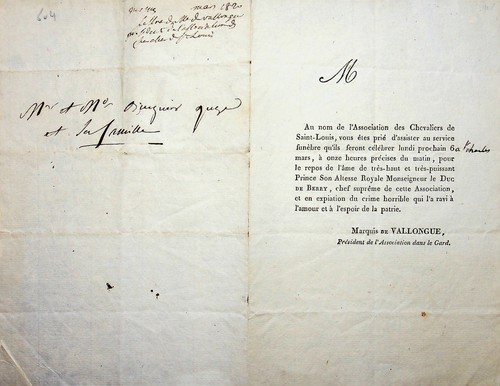 604
mars 1820
Lettre du Mis de Vallongue
président de l'association des
chevaliers de St Louis
Mr et Me
et sa famille
M
Au nom de l'Association des Chevaliers de
Saint-Louis, vous êtes prié d'assister au service
funèbre qu'ils feront célébrer lundi prochain 6
mars, à onze heures précises du matin, pour
le repos de l'âme de très-haut et très-puissant
Prince Son Altesse Royale Monseigneur le DUC
DE BERRY, chef suprême de cette Association,
et en expiation du crime horrible qui l'a ravi à
l'amour et à l'espoir de la patrie.
Marquis DE VALLONGUE,
Président de l'Association dans le Gard.